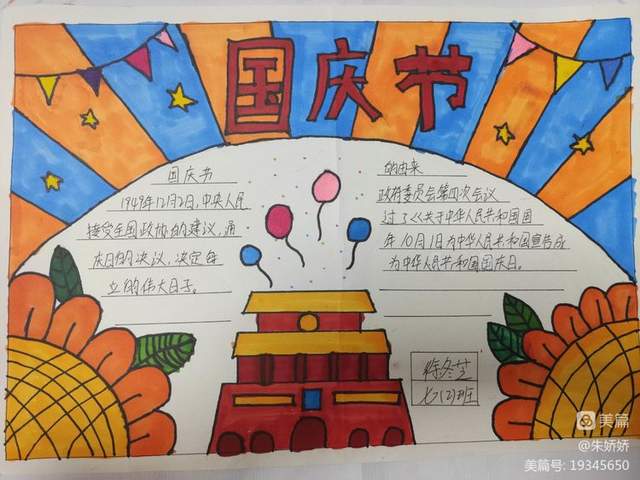 国庆节
国庆节 的由来
1949年12月2日,中央人民 政府委员会第四次会议
接受全国政协的建议,通 过了《关于中华人民共和国国
庆日的决议,决定每 年10月1日为中华人民共和国宣告成
立的伟大日子。 为中华人民共和国国庆日。
徐冬芝
七(2)班
美篇
@朱娇娇
美篇号: 19345650